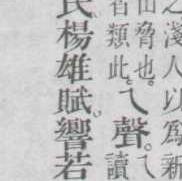 之淺人以爲新
脅也。
皆類此。
乁聲。
乁
讀
氏楊雄賦。響若